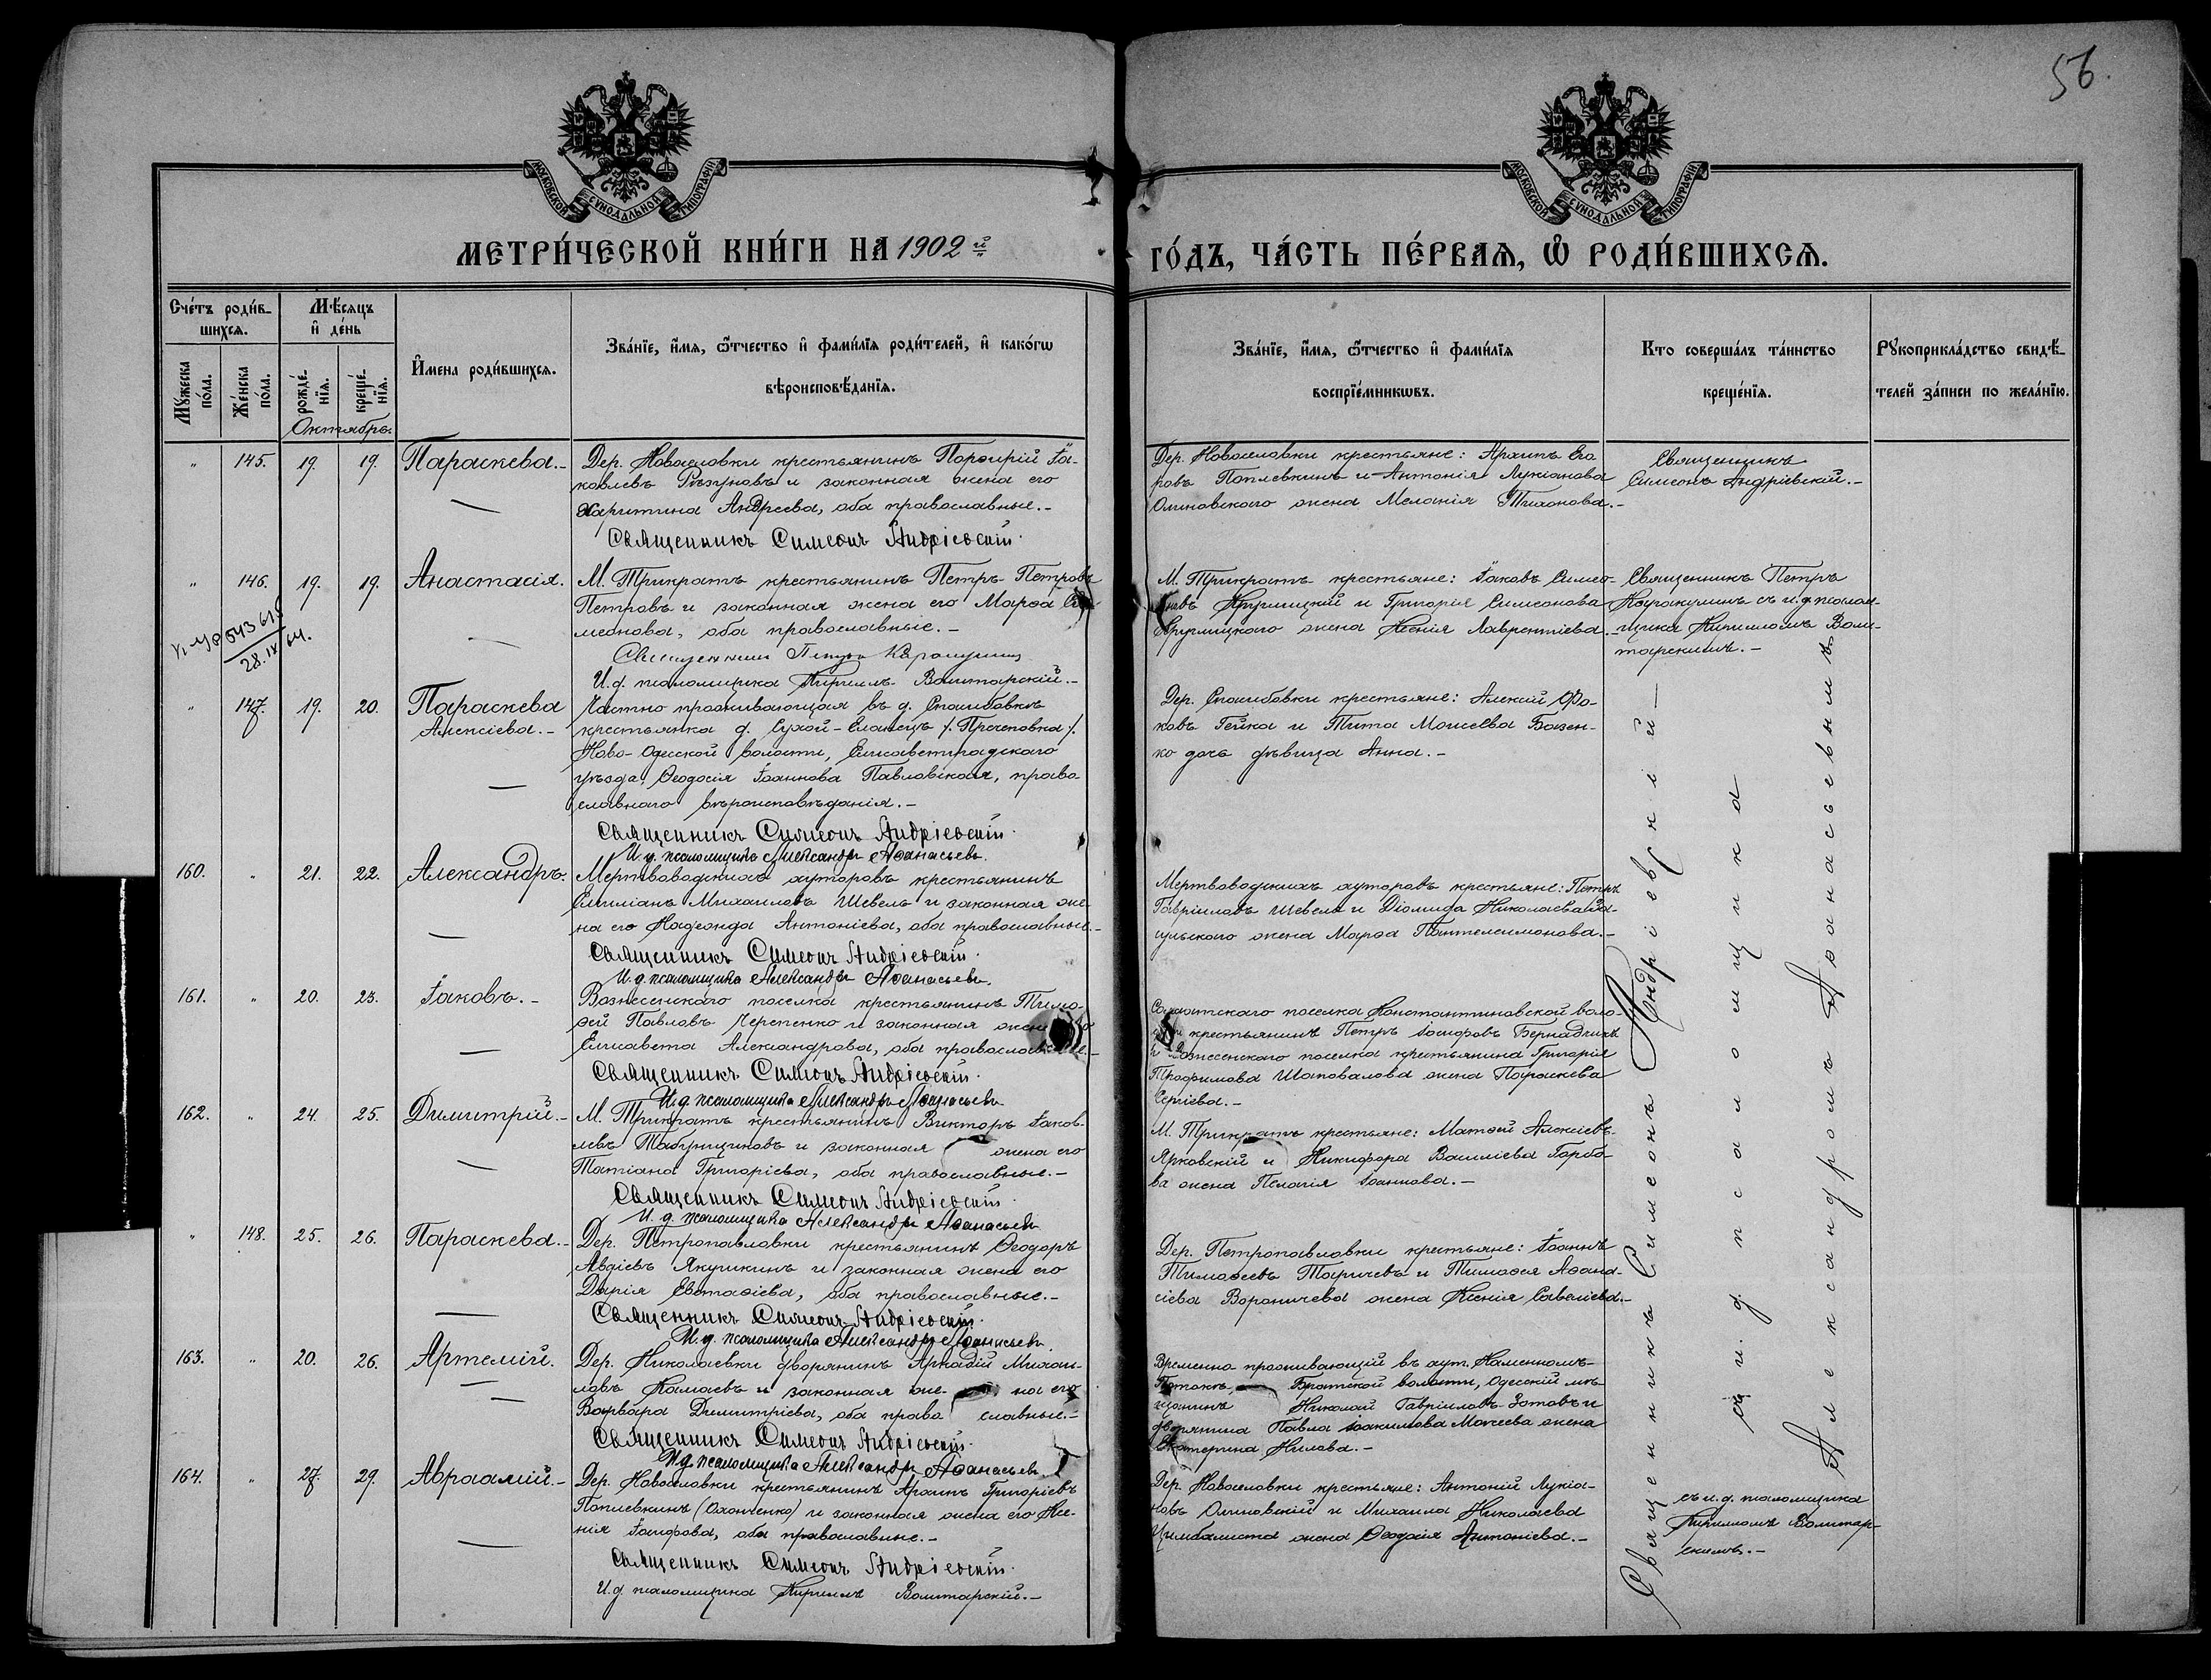 56.
МОСКОВСКОЙ СУНОДАЛЬНОЙ ТИПОГРАФІИ
МОСКОВСКОЙ СУНОДАЛЬНОЙ ТИПОГРАФІИ
МЕТРИ́ЧЕСКОЙ КНИ́ГИ НА 1902й
ГО́ДЪ, ЧА́СТЬ ПЕ́РВАѦ, Ѽ РОДИ́ВШИХСѦ.
Сче́тъ роди́в-
шихсѧ.
Мꙋжеска по́ла.
Же́нска по́ла.
Мѣ́сѧцъ
и҆ де́нь
рожде́нїѧ.
креще́нїѧ.
И҆мена роди́вшихсѧ.
Зва́нїе, и҆́мѧ, ѻ҆́тчество и҆ фами́лїѧ роди́телей, и҆ како́гѡ
вѣроисповѣ́данїѧ.
Зва́нїе, и҆́мѧ, ѻ҆́тчество и҆ фами́лїѧ
воспрїе́мникѡвъ.
Кто соверша́лъ та́инство
креще́нїѧ.
Рꙋкоприкла́дство свидѣ́-
телей за́писи по жела́нїю.
Октябрь.
" 145. 19. 19. Параскева.-
Дер. Новоселовки крестьянинъ Порфирій Іа-
ковлевъ Рѣзуновъ и законная жена его
Харитина Андреева, оба православные.-
Священникъ Симеонъ Андріевскій.
Дер. Новоселовки крестьяне: Архипъ Его
ровъ Поплевкинъ и Антонія Лукіанова
Олиновскаго жена Меланія Тихонова.-
Священникъ
Симеонъ Андріевскій.-
" 146. 19. 19. Анастасія.
28.IX 64.
М. Трикратъ крестьянинъ Петръ Петровъ
Петровъ и законная жена его Марѳа Си
меонова, оба православные.-
Священникъ Петръ Каракулинъ
И.д. псаломщика Кириллъ Волитарскій.-
М. Трикратъ крестьяне: Іаковъ Симео-
новъ Кружицкій и Григорія Симеонова
Кружицкаго жена Ксенія Лаврентіева.-
Священникъ Петръ
Каракулинъ съ и.д. псалом-
щика Кирилломъ Воли-
тарскимъ.-
" 147. 19. 20. Параскева
Алексіева.-
Частно проживающая въ д. Спасибовкѣ
крестьянка д. Сухой-Еланецъ /. Пречеповка /.
Ново-Одесской волости, Елисаветградскаго
уѣзда, Ѳеодосія Іоаннова Павловская, право
славнаго вѣроисповѣданія.-
Священникъ Симеонъ Андріевскій.
И. д. псаломщика Александръ Аѳанасьевъ.
Дер. Спасибовки крестьяне: Алексій Фо-
ковъ Гейка и Тита Моисеева Базен-
ко дочь дѣвица Анна.-
160. " 21. 22. Александръ.
Мертвоводскихъ хуторовъ крестьянинъ
Емиліанъ Михаиловъ Шевель и законная же-
на его Надежда Антоніева, оба православные.-
Священникъ Симеонъ Андріевскій.
И.д. псаломщика Александръ Аѳанасьевъ.
Мертвоводскихъ хуторовъ крестьяне: Петръ
Гавріиловъ Шевель и Діомида Николаева За-
гульскаго жена Марѳа Пантелеимонова.-
161. " 20. 23. Іаковъ.-
Вознесенскаго поселка крестьянинъ Тимо-
ѳей Павловъ Черепенко и законная жена его
Елисавета Александрова, оба православные.-
Священникъ Симеонъ Андріевскій.
И.д псаломщика Александръ Аѳанасьевъ
поселка Константиновской воло-
сти крестьянинъ Петръ Іосифовъ Бернадчикъ
и Вознесенскаго поселка крестьянина Григорія
Трофимова Шаповалова жена Параскева
Сергіева.-
162. " 24. 25. Димитрій.-
М. Трикратъ крестьянинъ Викторъ Іаков-
левъ Табунщиковъ и законная жена его
Татіана Григоріева, оба православные.-
Священникъ Симеонъ Андріевскій.
И. д. псаломщика Александръ Аѳанасьевъ
М. Трикратъ крестьяне: Матѳей Алексіевъ
Ярковскій и Никифора Василіева Горбо-
ва жена Пелагія Іоаннова.-
" 148. 25. 26. Параскева.-
Дер. Петропавловки крестьянинъ Ѳеодоръ
Авдіевъ Якушкинъ и законная жена его
Дарія Евстаѳіева, оба православные.-
Священникъ Симеонъ Андріевскій.
И.д. псаломщика Александръ Аѳанасьевъ.
Дер. Петропавловки крестьяне: Іоаннъ
Тимоѳеевъ Таричевъ и Тимоѳея Аѳана-
сіева Вороничева жена Ксенія Савеліева.-
163. " 20. 26. Артемій.
Дер. Николаевки дворянинъ Аркадій Михаи-
ловъ Камаевъ и законная же- на его
Варвара Димитріева, оба право славные.-
Священникъ Симеонъ Андріевскій.
И.д. псаломщика Александръ Аѳанасьевъ.
Временно проживающій въ хут. Каменномъ-
Потокѣ, Братской волости, Одесскій мѣ-
щанинъ Николай Гавріиловъ Зотовъ и
дворянина Павла Іоакимова Мокеева жена
Екатерина Нилова.-
164. " 27. 29. Авраамій.-
Дер. Новоселовки крестьянинъ Архипъ Григоріевъ
Поплевкинъ (Охотенко) и законная жена его Ксе-
нія Іосифова, оба православные.-
Священникъ Симеонъ Андріевскій.
И.д. псаломщика Кириллъ Волитарскій.-
Дер. Новоселовки крестьяне: Антоній Лукіа-
новъ Олиновскій и Михаила Николаева
Цимбалиста жена Ѳеодосія Антоніева.-
Священникъ Симеонъ Андріевскій-
съ и.д. псаломщика
Александромъ Аѳанасьевымъ.
съ и.д. псаломщика
Кирилломъ Волитар-
скимъ.-